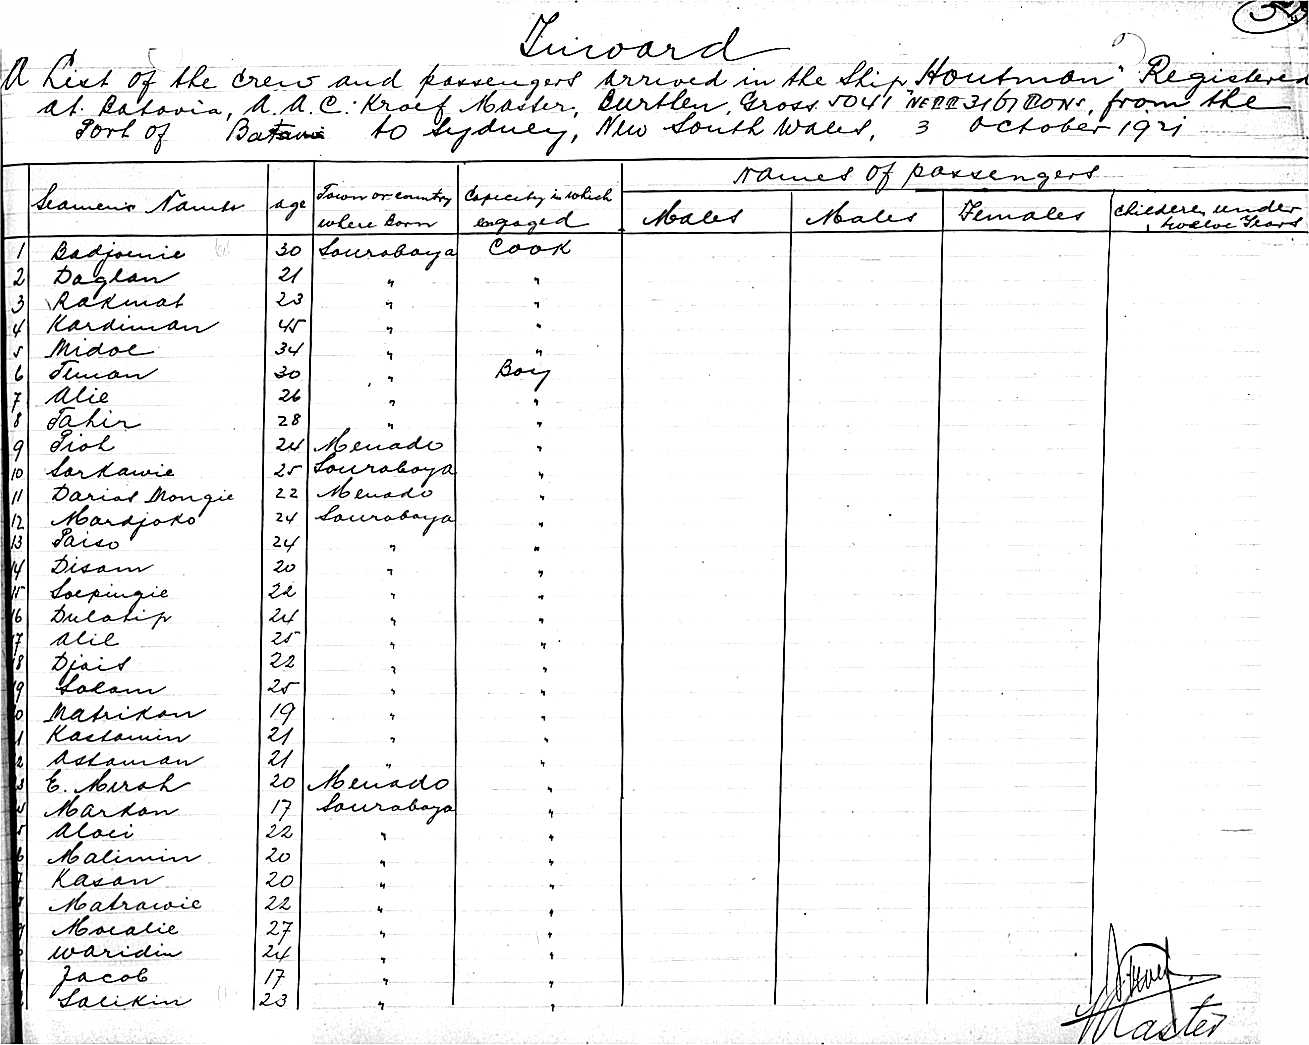 Inward
A List of the crew and passengers arrived in the Ship "Houtman" Registered
at Batavia, A. A. C. Kroef Master, Burthen, Gross 5041 Nett 3167 Tons, from the
Port of Batavia to Sydney, New South Wales, 3 October 1921
Names of passengers
Seamen's Names age Town or country where Born Capacity in which engaged Males Males Females Children under twelve Years
1 Badjoerie 30 Sourabaya Cook
2 Daglan 21 " "
3 Rakmat 23 " "
4 Kardiman 45 " "
5 Midoe 34 " "
6 Timan 30 " Boy
7 Alie 26 " "
8 Tahir 28 " "
9 Pioh 24 Menado "
10 Sarkawie 25 Sourabaya "
11 Darias Mongie 22 Menado "
12 Mardjoko 24 Sourabaya "
13 Paiso 24 " "
14 Disam 20 " "
15 Soepingie 22 " "
16 Dulatip 24 " "
17 Alil 25 " "
18 Djais 22 " "
19 Salam 25 " "
0 Matrikan 19 " "
1 Kastamin 21 " "
2 Astaman 21 " "
3 E. Merah 20 Menado "
Markan 17 Sourabaya "
5 Aloei 22 " "
6 Malimin 20 " "
7 Kasan 20 " "
Matrawie 22 " "
Moealie 27 " "
Waridin 24 " "
Jacob 17 " "
Salikin 23 " "
Master